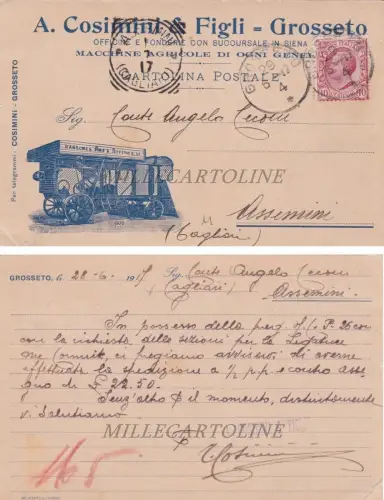 A. Cosimini & Figli = Grosseto
OFFICINE E FONDERIE CON SUCCURSALE IN SIENA
MACCHINE AGRICOLE DI OGNI GENERE
CARTOLINA POSTALE
Per telegrammi: COSIMINI - GROSSETO
Sig. Conte Angelo
RANSOMES, SIMS & JEFFERIES, Ld.
MILLECARTOLINE
Assemini
(Cagliari)
GROSSETO, li 28-6-1917 Sig. Conte Angelo
(Cagliari) Assemini
In possesso della preg. S/ P. 26 cor
con la richiesta delle sezioni per la Legatrice
Mc Cormick, ci pregiamo avvisarvi di averne
effettuata la spedizione a 1/2 p.p. e contro asse
gno di £ 22.50.
Senz'altro p il momento, distintamente
vi salutiamo.
MILLECARTOLINE
Cosimini
165